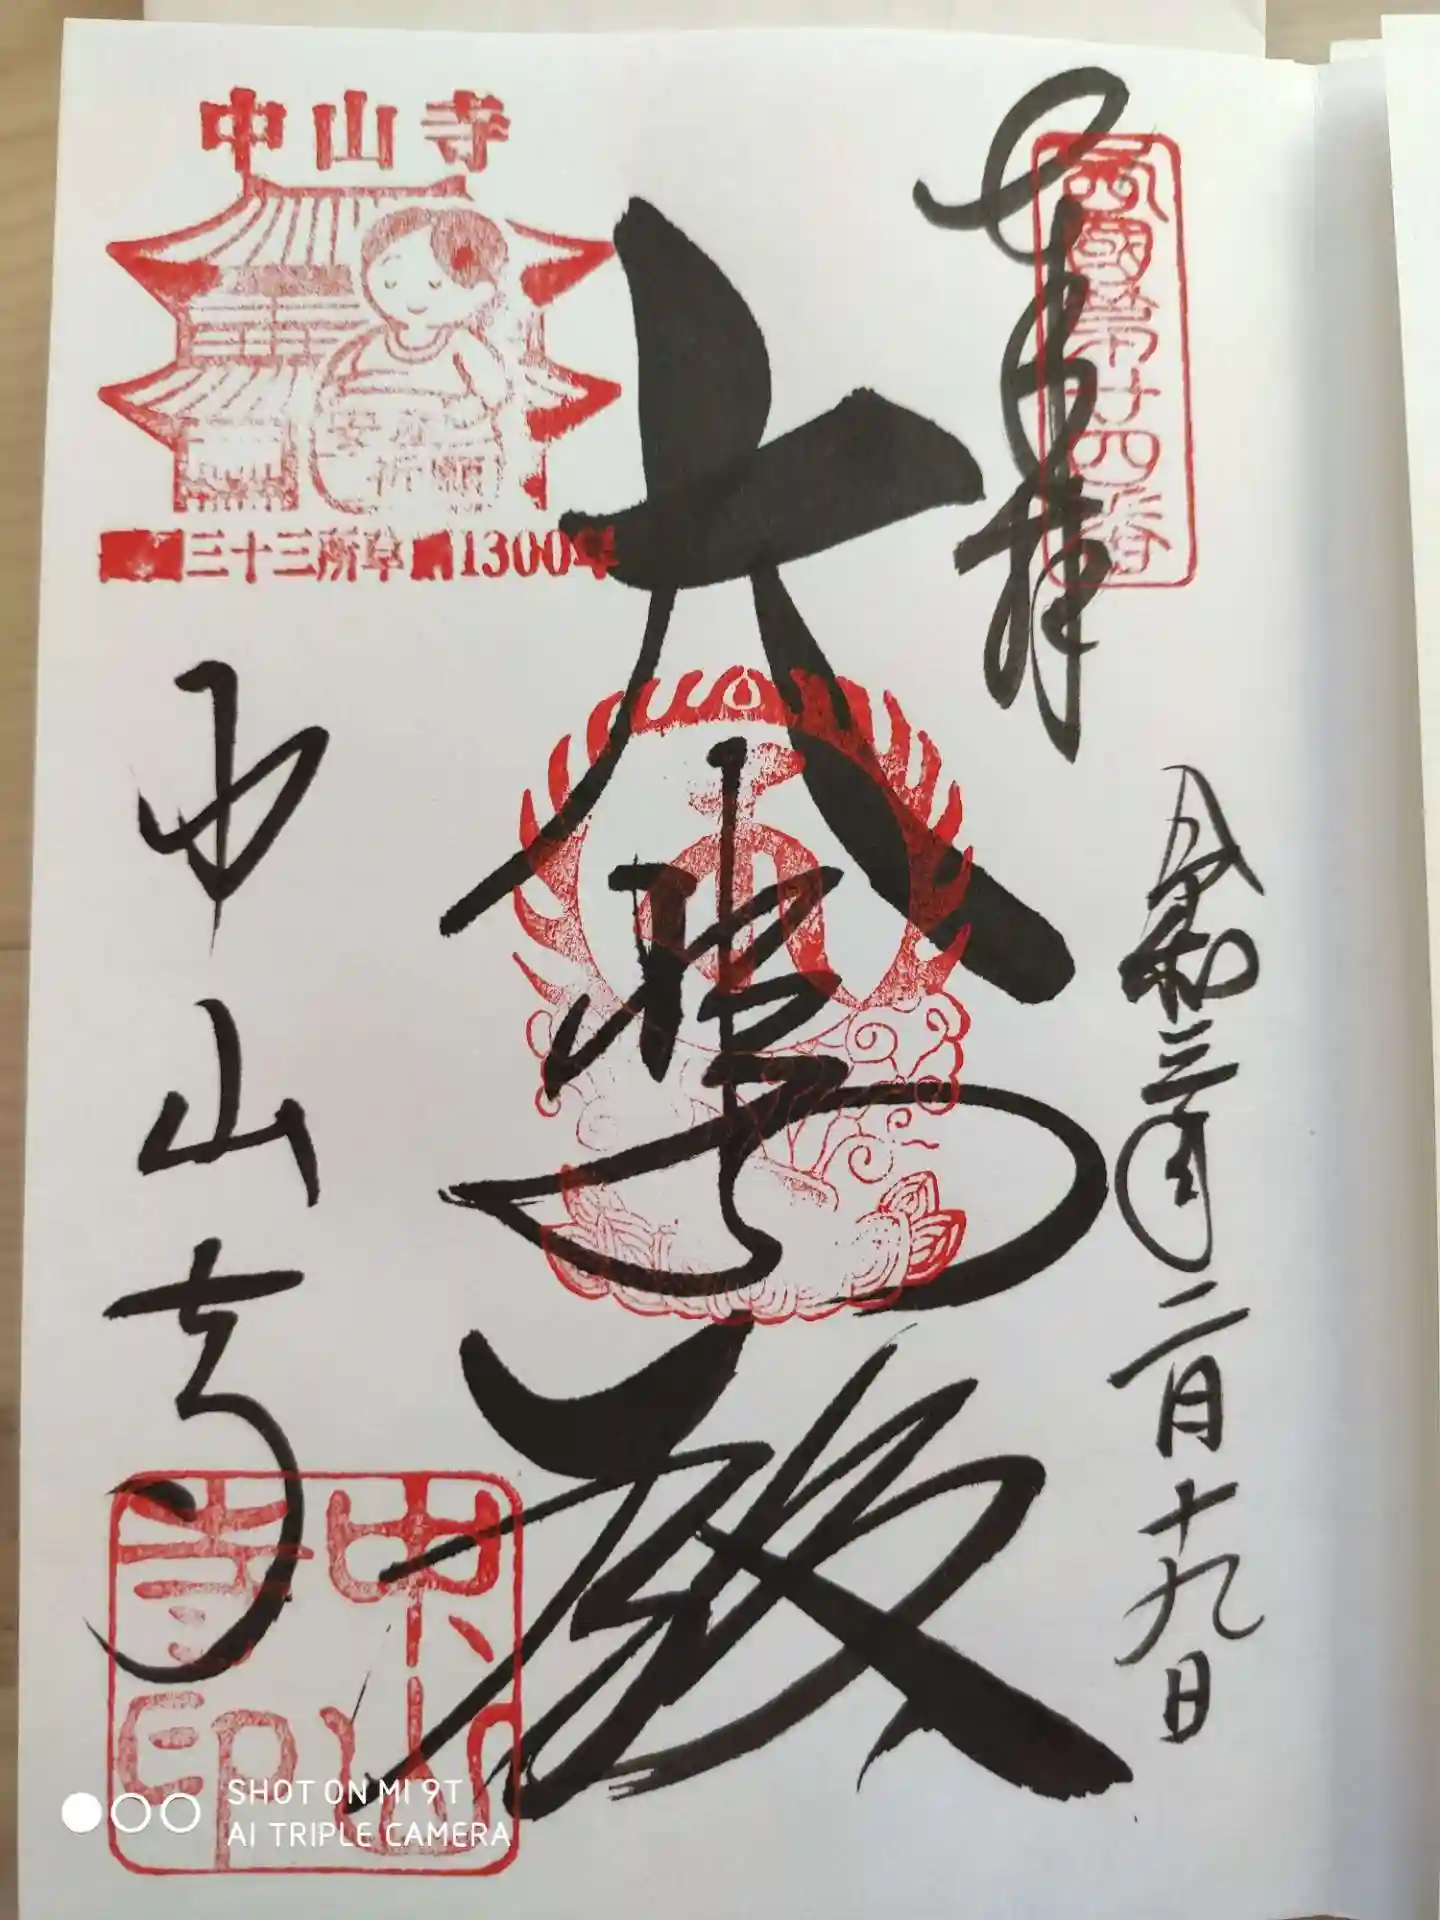 奉拝
西國第廿四番
令和三年二月十九日
大悲殿
中山寺
安産
祈願
三十三所草創1300年
中山寺
中山寺印
SHOT ON MI 9T
AI TRIPLE CAMERA